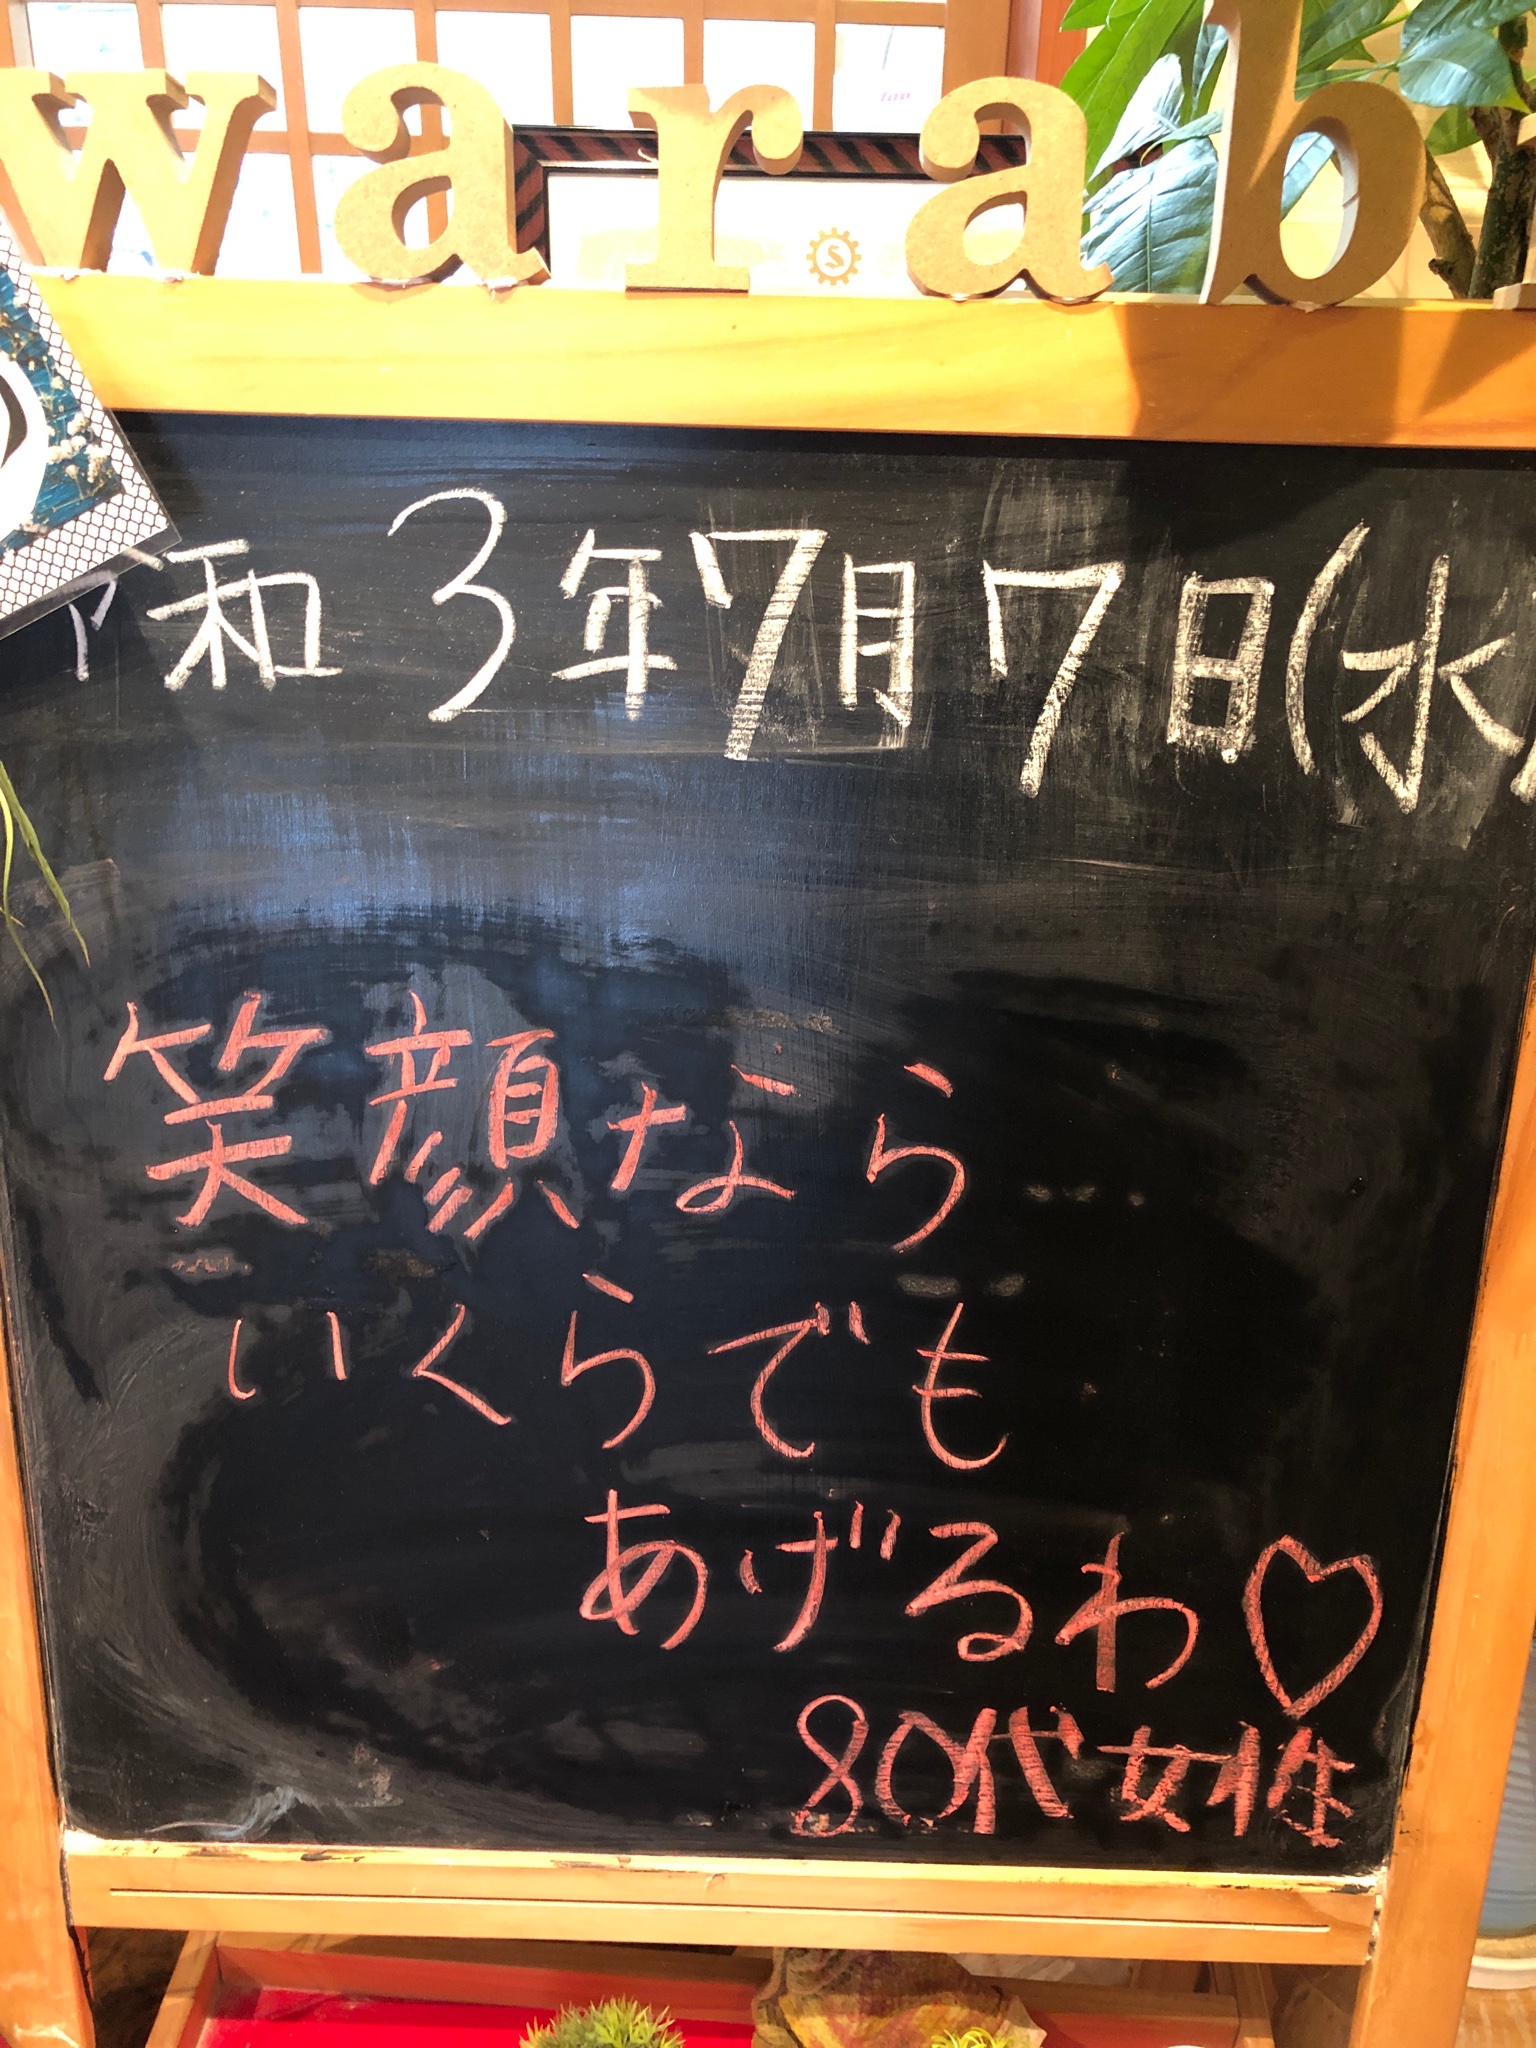 warab
令和3年7月7日(水)
笑顔なら
いくらでも
あげるわ♡
80代女性